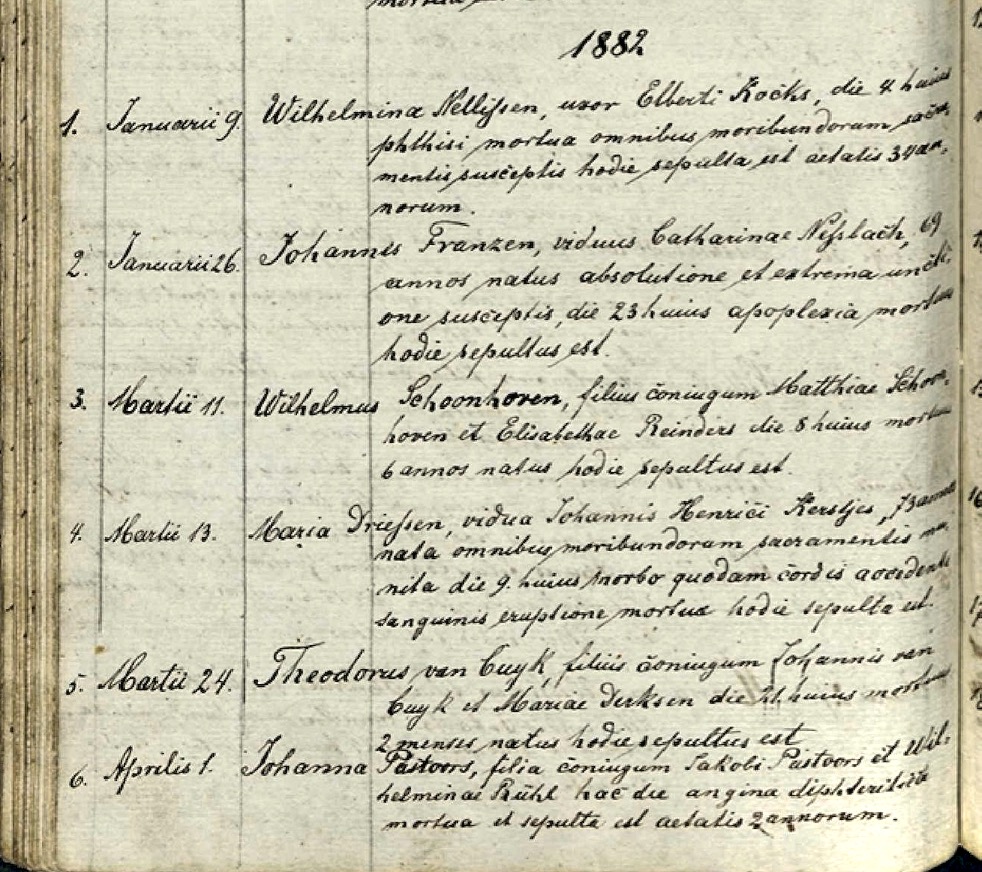 1882
1. Januarii 9. Wilhelmina Nellißen, uxor Elberti Kocks, die 4 huius
phthisi mortua omnibus moribundorum sacra-
mentis susceptis hodie sepulta est aetatis 34 an-
norum.
2. Januarii 26. Johannes Franzen, viduus Catharinae Neßlach, 69
annos natus absolutione et extrema uncti-
one susceptis, die 23 huius apoplexia mortuus
hodie sepultus est.
3. Martii 11. Wilhelmus Schoonhoven, filius coniugum Matthiae Schoon-
hoven et Elisabethae Reinders die 8 huius mortuus
6 annos natus hodie sepultus est.
4. Martii 13. Maria Drießen, vidua Johannis Henrici Kerstjes, 73 annos
nata omnibus moribundorum sacramentis mu-
nita die 9. huius morbo quodam cordis accedente
sanguinis eruptione mortua hodie sepulta est.
5. Martii 24. Theodorus van Cuyk, filius coniugum Johannis van
Cuyk et Mariae Derksen die 21. huius mortuus
2 menses natus hodie sepultus est
6. Aprilis 1. Johanna Pastoors, filia coniugum Jakobi Pastoors et Wil-
helminae Rühl hac die angina diphteritica
mortua et sepulta est aetatis 2 annorum.